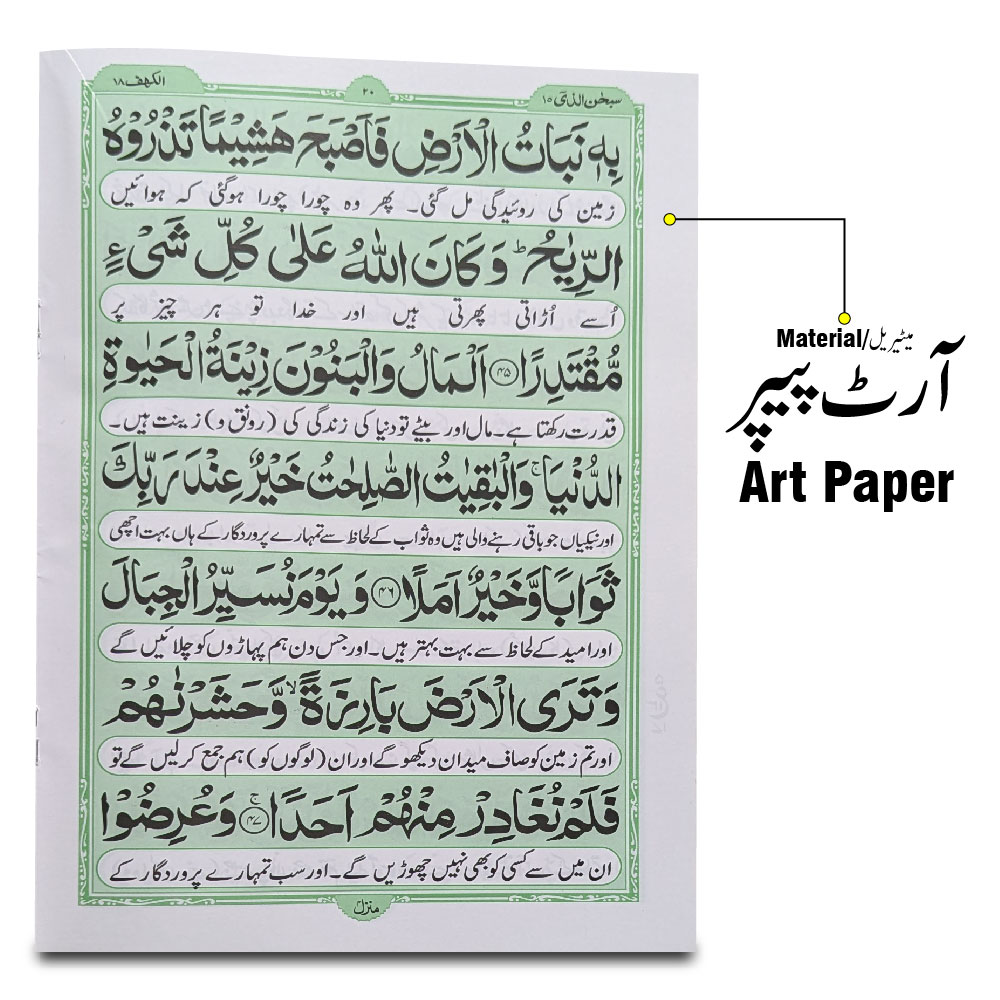 سبحٰن الذی ۱۵
۲۰
الکهف ۱۸
بِهٖ نَبَاتُ الْاَرْضِ فَاَصْبَحَ هَشِيْمًا تَذْرُوْهُ
زمین کی روئیدگی مل گئی۔ پھر وہ چورا چورا ہوگئی کہ ہوائیں
الرِّيٰحُ ؕ وَكَانَ اللّٰهُ عَلٰى كُلِّ شَىْءٍ
اُسے اُڑاتی پھرتی ہیں اور خدا تو ہر چیز پر
مُّقْتَدِرًا ۴۵ اَلْمَالُ وَالْبَنُوْنَ زِيْنَةُ الْحَيٰوةِ
قدرت رکھتا ہے۔ مال اور بیٹے تو دنیا کی زندگی کی (رونق و) زینت ہیں۔
الدُّنْيَا ۚ وَالْبٰقِيٰتُ الصّٰلِحٰتُ خَيْرٌ عِنْدَ رَبِّكَ
اور نیکیاں جو باقی رہنے والی ہیں وہ ثواب کے لحاظ سے تمہارے پروردگار کے ہاں بہت اچھی
ثَوَابًا وَّخَيْرٌ اَمَلًا ۴۶ وَيَوْمَ نُسَيِّرُ الْجِبَالَ
اور امید کے لحاظ سے بہت بہتر ہیں۔ اور جس دن ہم پہاڑوں کو چلائیں گے
وَتَرَى الْاَرْضَ بَارِزَةً ۙ وَّحَشَرْنٰهُمْ
اور تم زمین کو صاف میدان دیکھو گے اور ان (لوگوں کو) ہم جمع کرلیں گے تو
فَلَمْ نُغَادِرْ مِنْهُمْ اَحَدًا ۚ ۴۷ وَعُرِضُوْا
ان میں سے کسی کو بھی نہیں چھوڑیں گے۔ اور سب تمہارے پروردگار کے
منزل
Material/میٹیریل
آرٹ پیپر
Art Paper